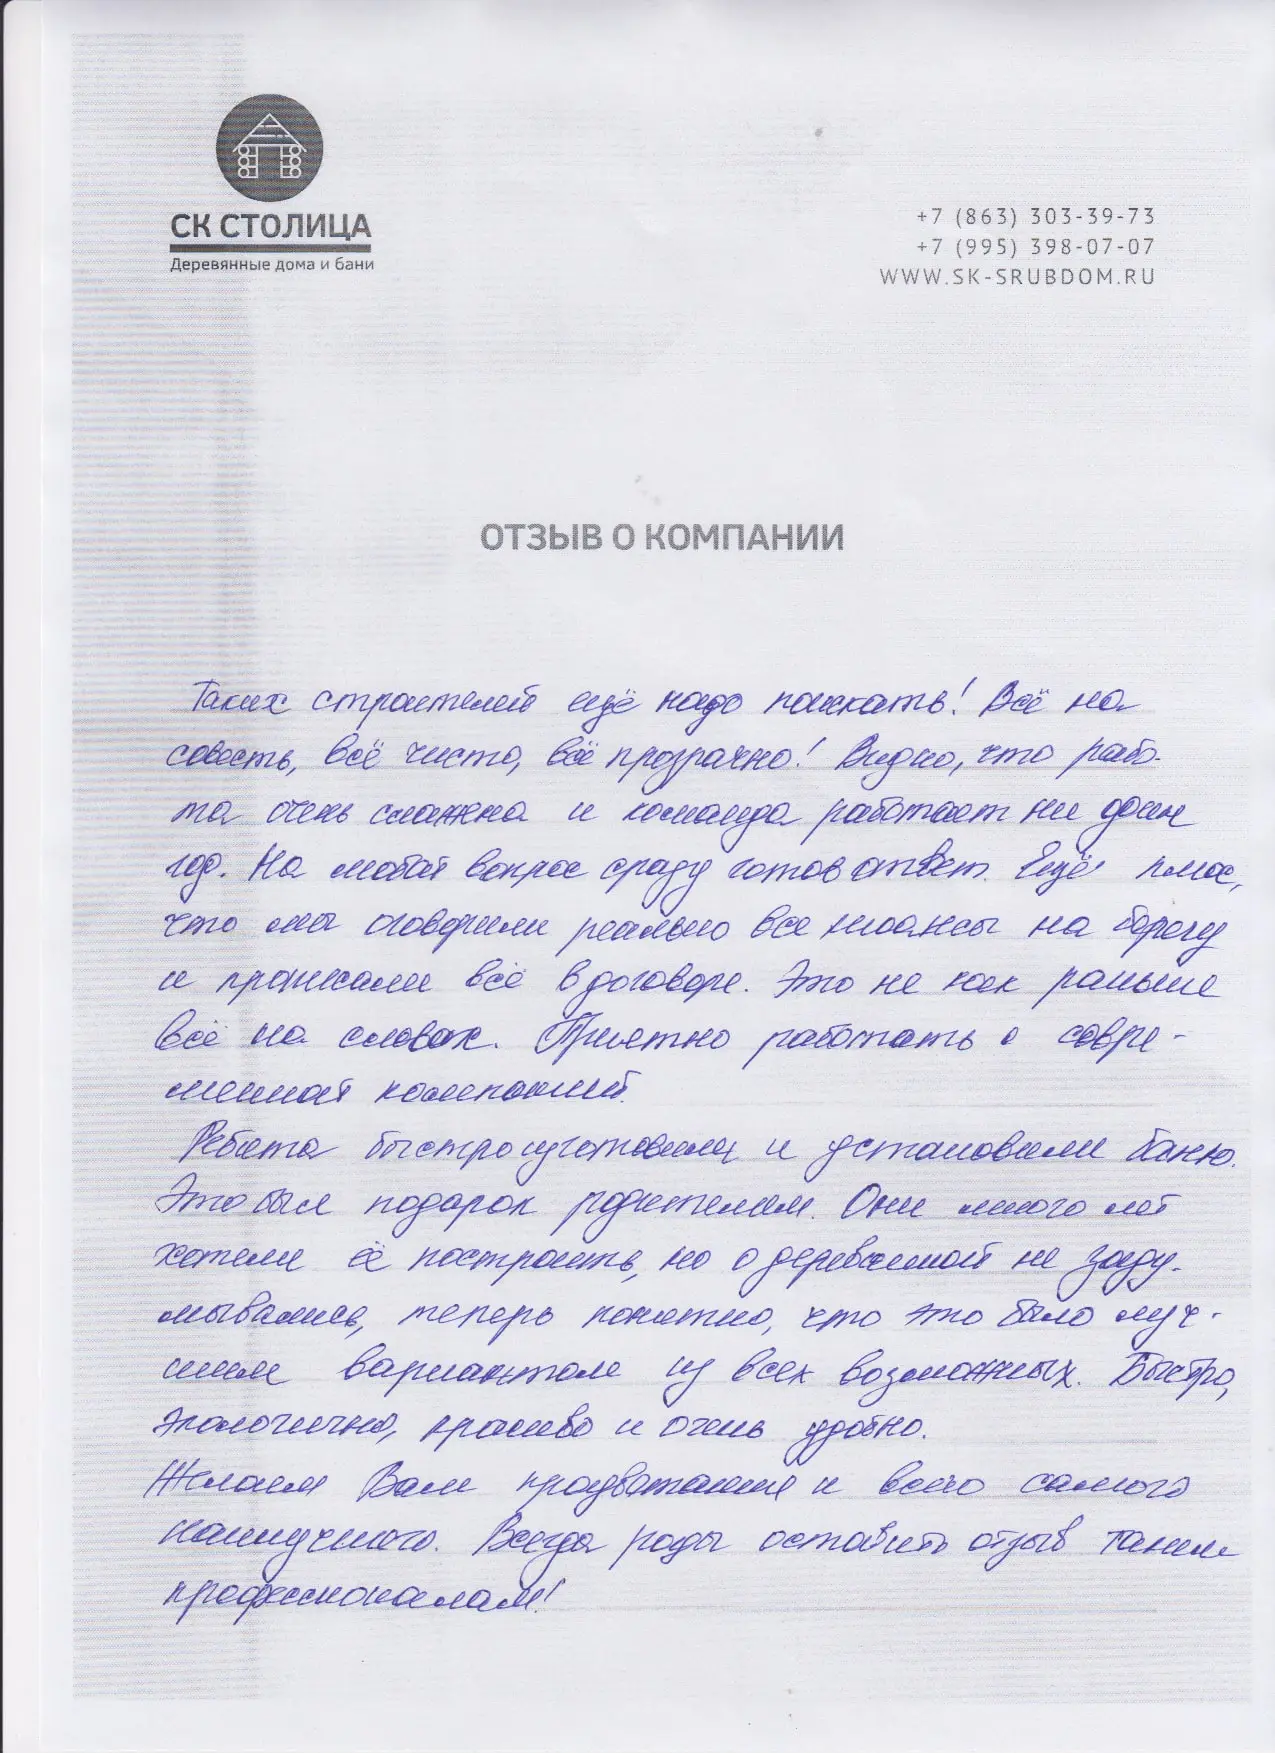 СК СТОЛИЦА
Деревянные дома и бани
+7 (863) 303-39-73
+7 (995) 398-07-07
WWW.SK-SRUBDOM.RU
ОТЗЫВ О КОМПАНИИ
Таких строителей ещё надо поискать! Всё на
совесть, всё чисто, всё прозрачно! Видно, что рабо-
та очень слажена и команда работает ни один
год. На любой вопрос сразу готов ответ. Ещё плюс,
что мы оговорили реально все нюансы на берегу
и прописали всё в договоре. Это не как раньше
всё на словах. Приятно работать с совре-
менной компанией.
Ребята быстро изготовили и установили баню.
Это был подарок родителям. Они много лет
хотели её построить, но о деревянной не заду-
мывались, теперь понятно, что это было луч-
шим вариантом из всех возможных. Быстро,
экологично, красиво и очень удобно.
Желаем Вам процветания и всего самого
наилучшего. Всегда рады оставить отзыв таким
профессионалам!